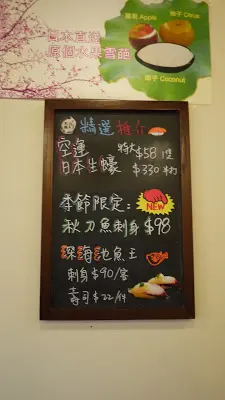 日本直送
原個水果雪葩
蘋果 Apple
柚子 Citrus
椰子 Coconut
精選 推介
空運 特大 $58/隻
日本生蠔 $330/半打
季節限定：
NEW
秋刀魚刺身 $98
深海池魚王
刺身 $90/客
壽司 $22/件